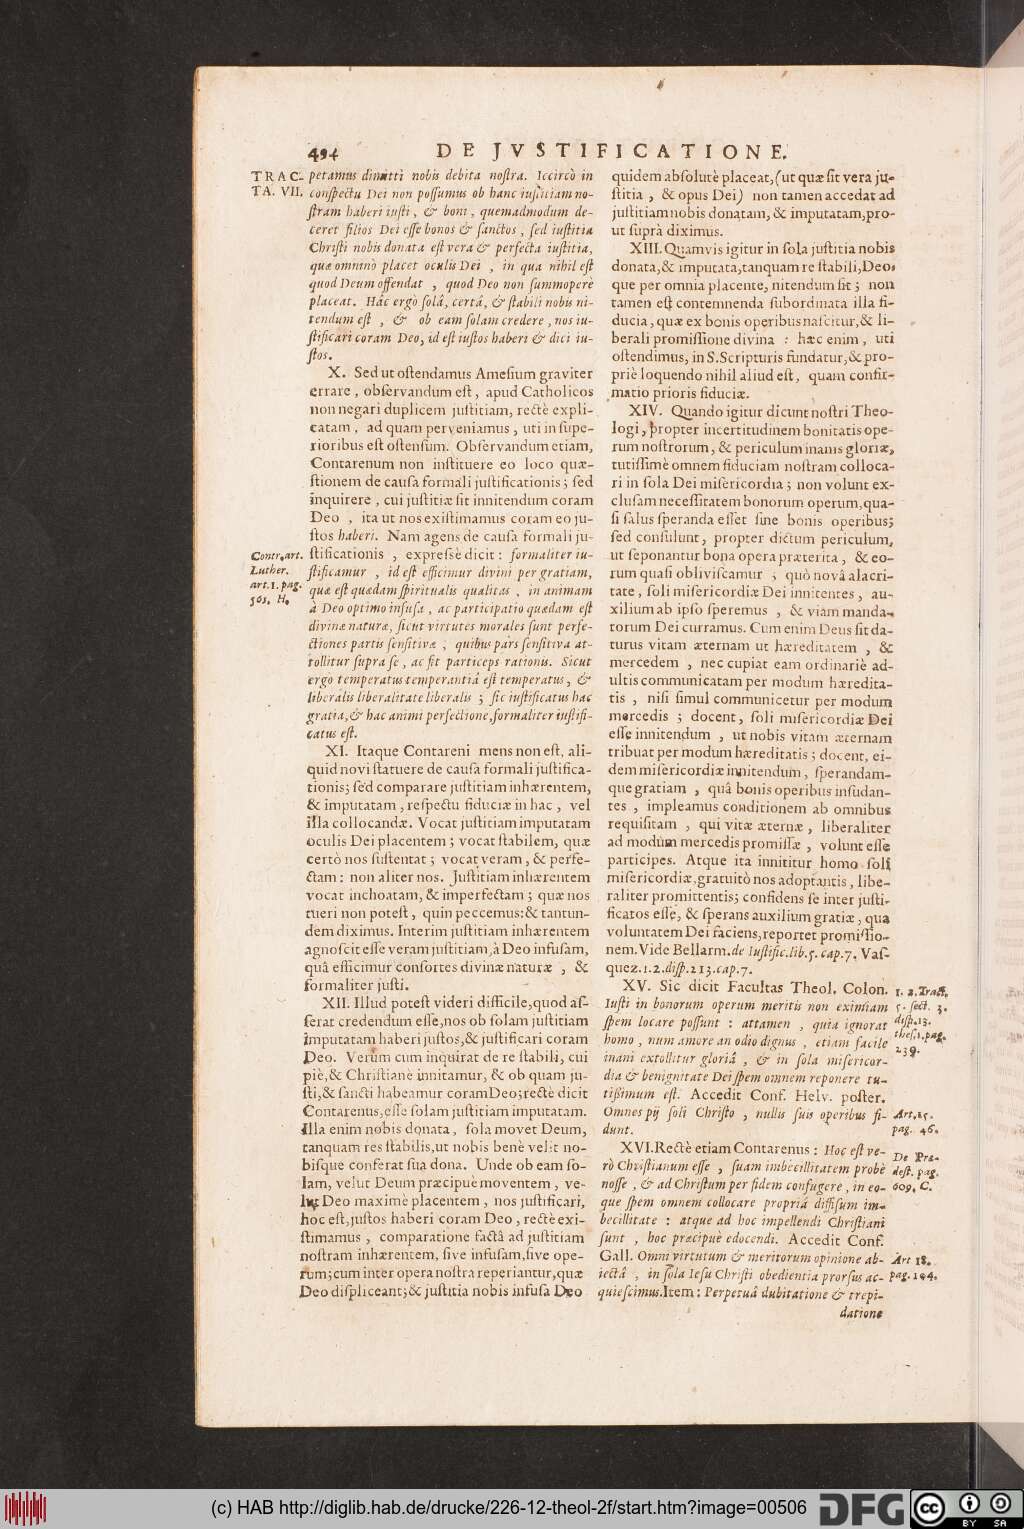 494
DE JVSTIFICATIONE.
TRAC-
TA. VII.
petamus dimitti nobis debita nostra. Iccircò in
conspectu Dei non possumus ob hanc iustitiam no-
stram haberi iusti, & boni, quemadmodum de-
ceret filios Dei esse bonos & sanctos, sed iustitia
Christi nobis donata est vera & perfecta iustitia,
quæ omninò placet oculis Dei , in qua nihil est
quod Deum offendat , quod Deo non summoperè
placeat. Hâc ergò solâ, certâ, & stabili nobis ni-
tendum est , & ob eam solam credere, nos iu-
stificari coram Deo, id est iustos haberi & dici iu-
stos.
X. Sed ut ostendamus Amesium graviter
errare, observandum est, apud Catholicos
non negari duplicem justitiam, rectè expli-
catam, ad quam perveniamus, uti in supe-
rioribus est ostensum. Observandum etiam,
Contarenum non instituere eo loco quæ-
stionem de causa formali justificationis; sed
inquirere, cui justitiæ sit innitendum coram
Deo , ita ut nos existimamus coram eo ju-
stos haberi. Nam agens de causa formali ju-
stificationis , expressè dicit: formaliter iu-
stificamur , id est efficimur divini per gratiam,
quæ est quædam spiritualis qualitas , in animam
à Deo optimo infusa, ac participatio quædam est
divinæ naturæ, sicut virtutes morales sunt perfe-
ctiones partis sensitivæ ; quibus pars sensitiva at-
tollitur supra se, ac fit particeps rationis. Sicut
ergo temperatus temperantiâ est temperatus, &
liberalis liberalitate liberalis ; sic iustificatus hac
gratia,& hac animi perfectione,formaliter iustifi-
catus est.
Contr.art.
Luther.
art.1. pag.
563. H.
XI. Itaque Contareni mens non est, ali-
quid novi statuere de causa formali justifica-
tionis; sed comparare justitiam inhærentem,
& imputatam, respectu fiduciæ in hac, vel
illa collocandæ. Vocat justitiam imputatam
oculis Dei placentem; vocat stabilem, quæ
certò nos sustentat; vocat veram, & perfe-
ctam: non aliter nos. Justitiam inhærentem
vocat inchoatam, & imperfectam; quæ nos
tueri non potest, quin peccemus:& tantun-
dem diximus. Interim justitiam inhærentem
agnoscit esse veram justitiam,à Deo infusam,
quâ efficimur consortes divinæ naturæ , &
formaliter justi.
XII. Illud potest videri difficile,quod as-
serat credendum esse,nos ob solam justitiam
imputatam haberi justos,& justificari coram
Deo. Verùm cum inquirat de re stabili, cui
piè,& Christianè innitamur, & ob quam ju-
sti,& sancti habeamur coramDeo;rectè dicit
Contarenus,esse solam justitiam imputatam.
Illa enim nobis donata, sola movet Deum,
tanquam res stabilis,ut nobis benè velit no-
bisque conferat sua dona. Unde ob eam so-
lam, velut Deum præcipuè moventem, ve-
lut Deo maximè placentem , nos justificari,
hoc est,justos haberi coram Deo, rectè exi-
stimamus , comparatione factâ ad justitiam
nostram inhærentem, sive infusam,sive ope-
rum;cum inter opera nostra reperiantur,quæ
Deo displiceant;& justitia nobis infusa Deo
quidem absolutè placeat,(ut quæ sit vera ju-
stitia , & opus Dei) non tamen accedat ad
justitiam nobis donatam, & imputatam,pro-
ut suprà diximus.
XIII. Quamvis igitur in sola justitia nobis
donata,& imputata,tanquam re stabili,Deo-
que per omnia placente, nitendum sit; non
tamen est contemnenda subordinata illa fi-
ducia, quæ ex bonis operibus nascitur,& li-
berali promissione divina : hæc enim, uti
ostendimus, in S.Scripturis fundatur,& pro-
priè loquendo nihil aliud est, quam confir-
matio prioris fiduciæ.
XIV. Quando igitur dicunt nostri Theo-
logi, propter incertitudinem bonitatis ope-
rum nostrorum, & periculum inanis gloriæ,
tutissimè omnem fiduciam nostram colloca-
ri in sola Dei misericordia; non volunt ex-
clusam necessitatem bonorum operum,qua-
si salus speranda esset sine bonis operibus;
sed consulunt, propter dictum periculum,
ut seponantur bona opera præterita, & eo-
rum quasi obliviscamur ; quò novâ alacri-
tate, soli misericordiæ Dei innitentes, au-
xilium ab ipso speremus , & viam manda-
torum Dei curramus. Cum enim Deus sit da-
turus vitam æternam ut hæreditatem , &
mercedem , nec cupiat eam ordinariè ad-
ultis communicatam per modum hæredita-
tis , nisi simul communicetur per modum
mercedis ; docent, soli misericordiæ Dei
esse innitendum , ut nobis vitam æternam
tribuat per modum hæreditatis; docent, ei-
dem misericordiæ innitendum, sperandam-
que gratiam , quâ bonis operibus insudan-
tes , impleamus conditionem ab omnibus
requisitam , qui vitæ æternæ, liberaliter
ad modùm mercedis promissæ, volunt esse
participes. Atque ita innititur homo soli
misericordiæ,gratuitò nos adoptantis, libe-
raliter promittentis; confidens se inter justi-
ficatos esse, & sperans auxilium gratiæ, qua
voluntatem Dei faciens,reportet promissio-
nem. Vide Bellarm.de Iustific.lib.5. cap.7. Vas-
quez.1.2.disp.213.cap.7.
XV. Sic dicit Facultas Theol. Colon.
Iusti in bonorum operum meritis non eximiam
spem locare possunt : attamen , quia ignorat
homo, num amore an odio dignus , etiam facile
inani extollitur gloriâ , & in sola misericor-
dia & benignitate Dei spem omnem reponere tu-
tissimum est. Accedit Conf. Helv. poster.
Omnes pij soli Christo , nullis suis operibus fi-
dunt.
1. 2. Tract.
5. sect. 3.
disp.13.
thes.1.pag.
239.
Art.15.
pag. 46.
XVI.Rectè etiam Contarenus : Hoc est ve-
rò Christianum esse , suam imbecillitatem probè
nosse , & ad Christum per fidem confugere, in eo-
que spem omnem collocare propriâ diffisum im-
becillitate : atque ad hoc impellendi Christiani
sunt , hoc præcipuè edocendi. Accedit Conf.
Gall. Omni virtutum & meritorum opinione ab-
iectâ , in sola Iesu Christi obedientia prorsus ac-
quiescimus.Item: Perpetuâ dubitatione & trepi-
De Præ-
dest. pag.
609. C.
Art 18.
pag. 104.
datione
(c) HAB http://diglib.hab.de/drucke/226-12-theol-2f/start.htm?image=00506
DFG
cc
BY SA